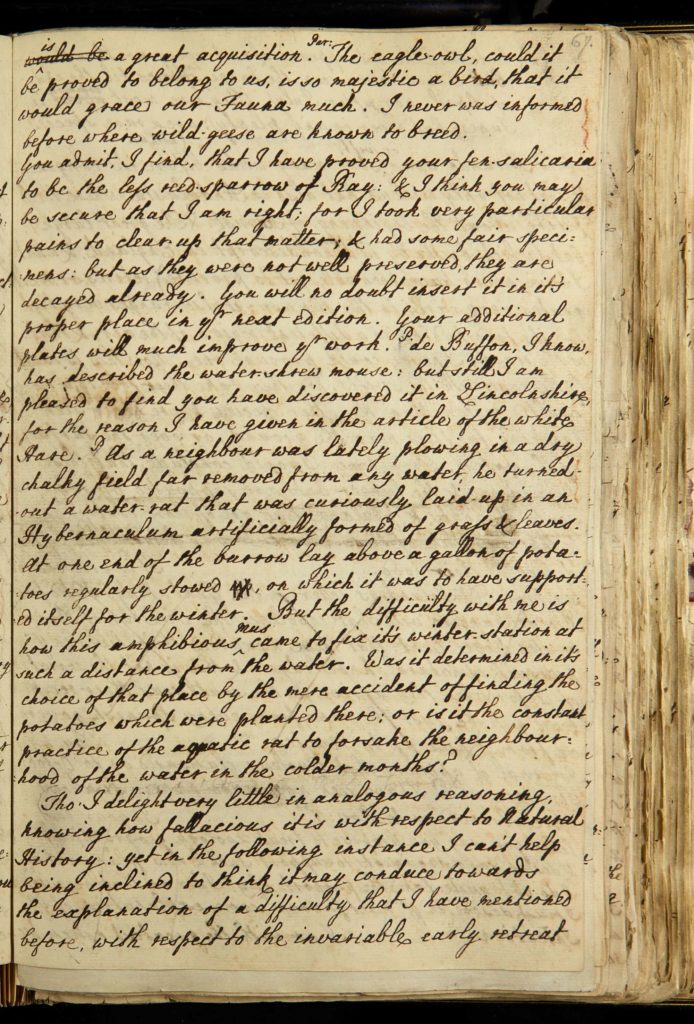 is
would be a great acquisition. Par: The eagle-owl, could it
be proved to belong to us, is so majestic a bird, that it
would grace our Fauna much. I never was informed
before where wild-geese are known to breed.
You admit, I find, that I have proved your fen-salicaria
to be the less reed-sparrow of Ray: & I think you may
be secure that I am right; for I took very particular
pains to clear up that matter, & had some fair speci-
mens: but as they were not well preserved, they are
decayed already. You will no doubt insert it in it's
proper place in yr next edition. Your additional
plates will much improve yr work. P de Buffon, I know,
has described the water-shrew mouse: but still I am
pleased to find you have discovered it in Lincolnshire,
for the reason I have given in the article of the white
Hare. P As a neighbour was lately plowing in a dry
chalky field far removed from any water, he turned-
out a water-rat that was curiously laid-up in an
Hybernaculum artificially formed of grass & leaves.
At one end of the burrow lay above a gallon of pota-
toes regularly stowed, on which it was to have support-
ed itself for the winter. But the difficulty with me is
how this amphibious mus came to fix it's winter station at
such a distance from the water. Was it determined in it's
choice of that place by the mere accident of finding the
potatoes which were planted there; or is it the constant
practice of the aquatic rat to forsake the neighbour-
hood of the water in the colder months?
Tho' I delight very little in analogous reasoning,
knowing how fallacious it is with respect to Natural
History: yet in the following instance I can't help
being inclined to think it may conduce towards
the explanation of a difficulty that I have mentioned
before, with respect to the invariable early retreat